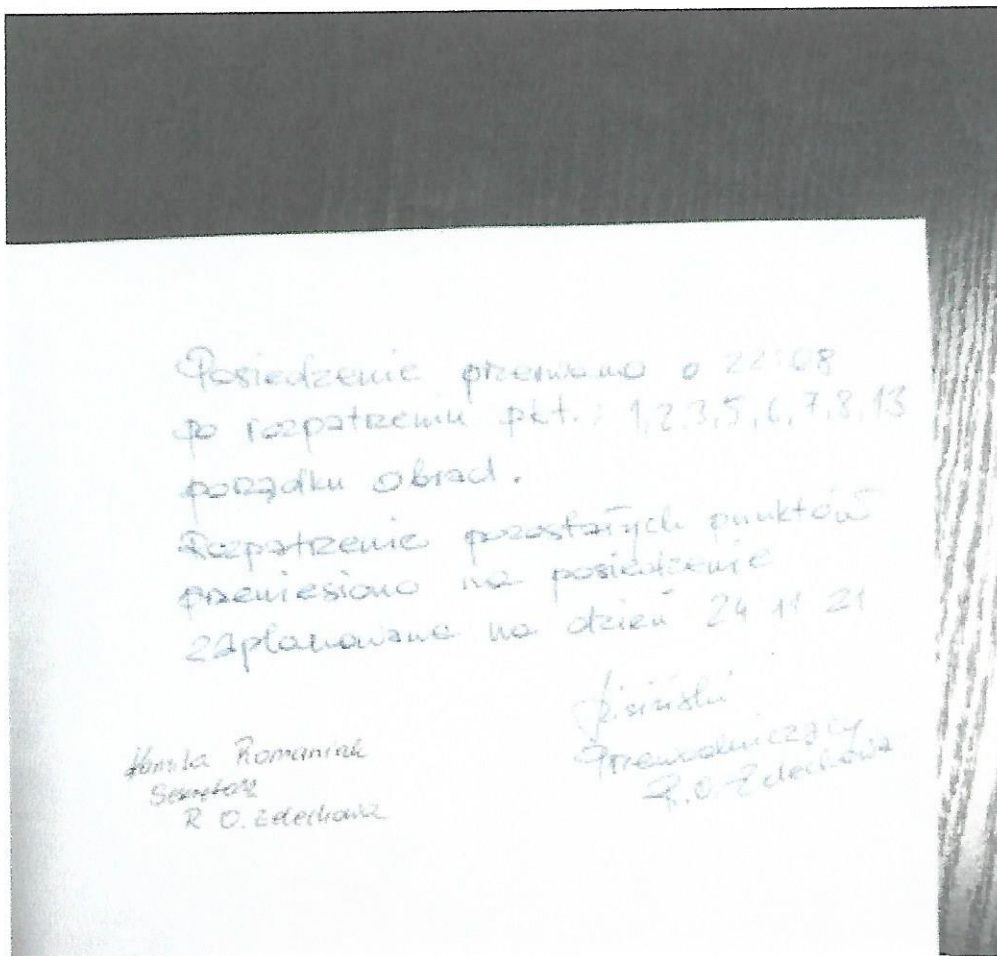 Posiedzenie przerwano o 22:08
po rozpatrzeniu pkt.: 1,2,3,5,6,7,8,13
porządku obrad.
Rozpatrzenie pozostałych punktów
przeniesiono na posiedzenie
zaplanowane na dzień 24 11 21
Kamila Romaniak
Sekretarz
R O. Zdechowa
Przewodniczący
R.O. Zdechowa